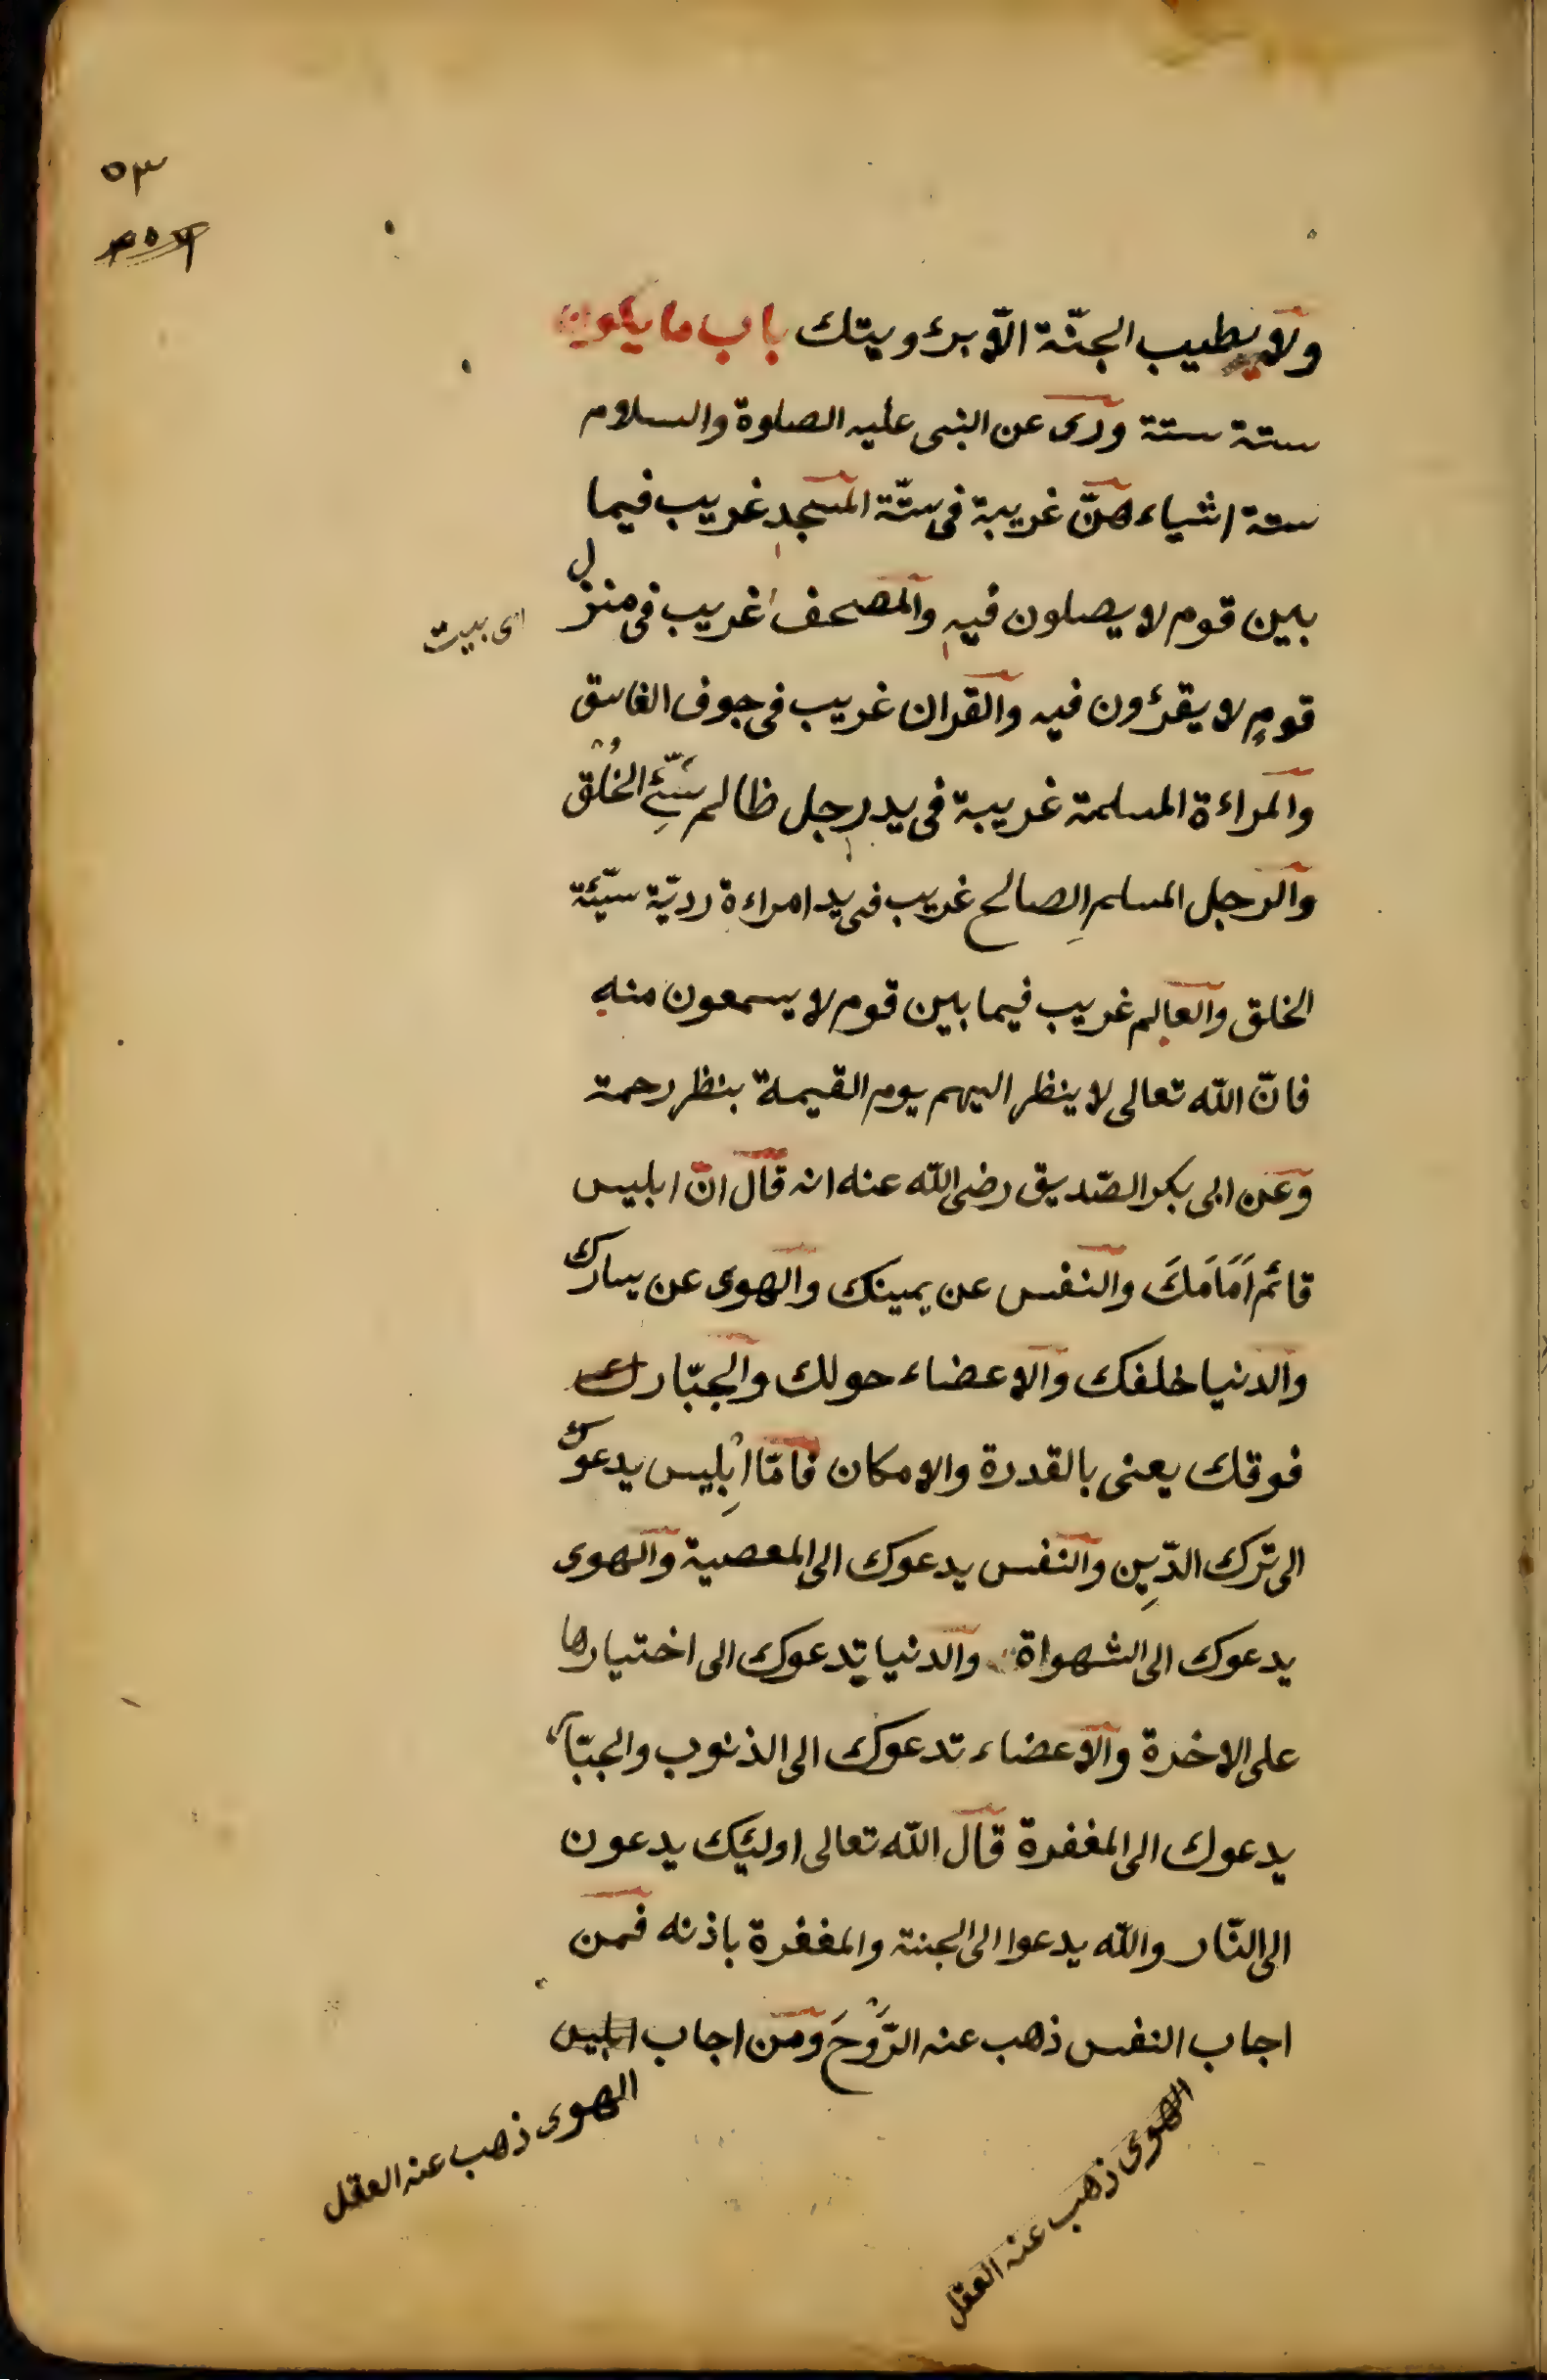 ٥٣
ولا يطيب الجنّة الّا برؤيتك باب ما يكون
ستة ستة ورى عن النبى عليه الصلوة والسلام
ستة اشياء هنّ غريبة فى ستّة المسجد غريب فيما
بين قوم لا يصلون فيه والمصحف غريب فى منزل
اى بيت
قومٍ لا يقرؤن فيه والقران غريب فى جوف الفاسق
والمراءة المسلمة غريبة فى يد رجل ظالم سَيّئِ الخُلْق
والرجل المسلم الصالح غريب فى يد امراءة رديّة سيّئة
الخلق والعالم غريب فيما بين قوم لا يسمعون منه
فانّ اللّه تعالى لا ينظر اليهم يوم القيمة بنظر رحمة
وعن ابى بكر الصّديق رضى اللّه عنه انه قال انّ ابليس
قائم اَمَامَكَ والنفس عن يمينك والهوى عن يسارك
والدنيا خلفك والاعضاء حولك والجبّار
فوقك يعنى بالقدرة والامكان فامّا اِبْليس يدعوك
الى ترك الدِّين والنفس يدعوك الى المعصية والهوى
يدعوك الى الشهواة والدنيا تدعوك الى اختيارها
على الاخرة والاعضاء تدعوك الى الذنوب والجبّار
يدعوك الى المغفرة قال اللّه تعالى اولئك يدعون
الى النّار واللّه يدعوا الى الجنة والمغفرة باذنه فمن
اجاب النفس ذهب عنه الرَّوْحَ ومن اجاب ابليس
الهوى ذهب عنه العقل
الهوى ذهب عنه العقل